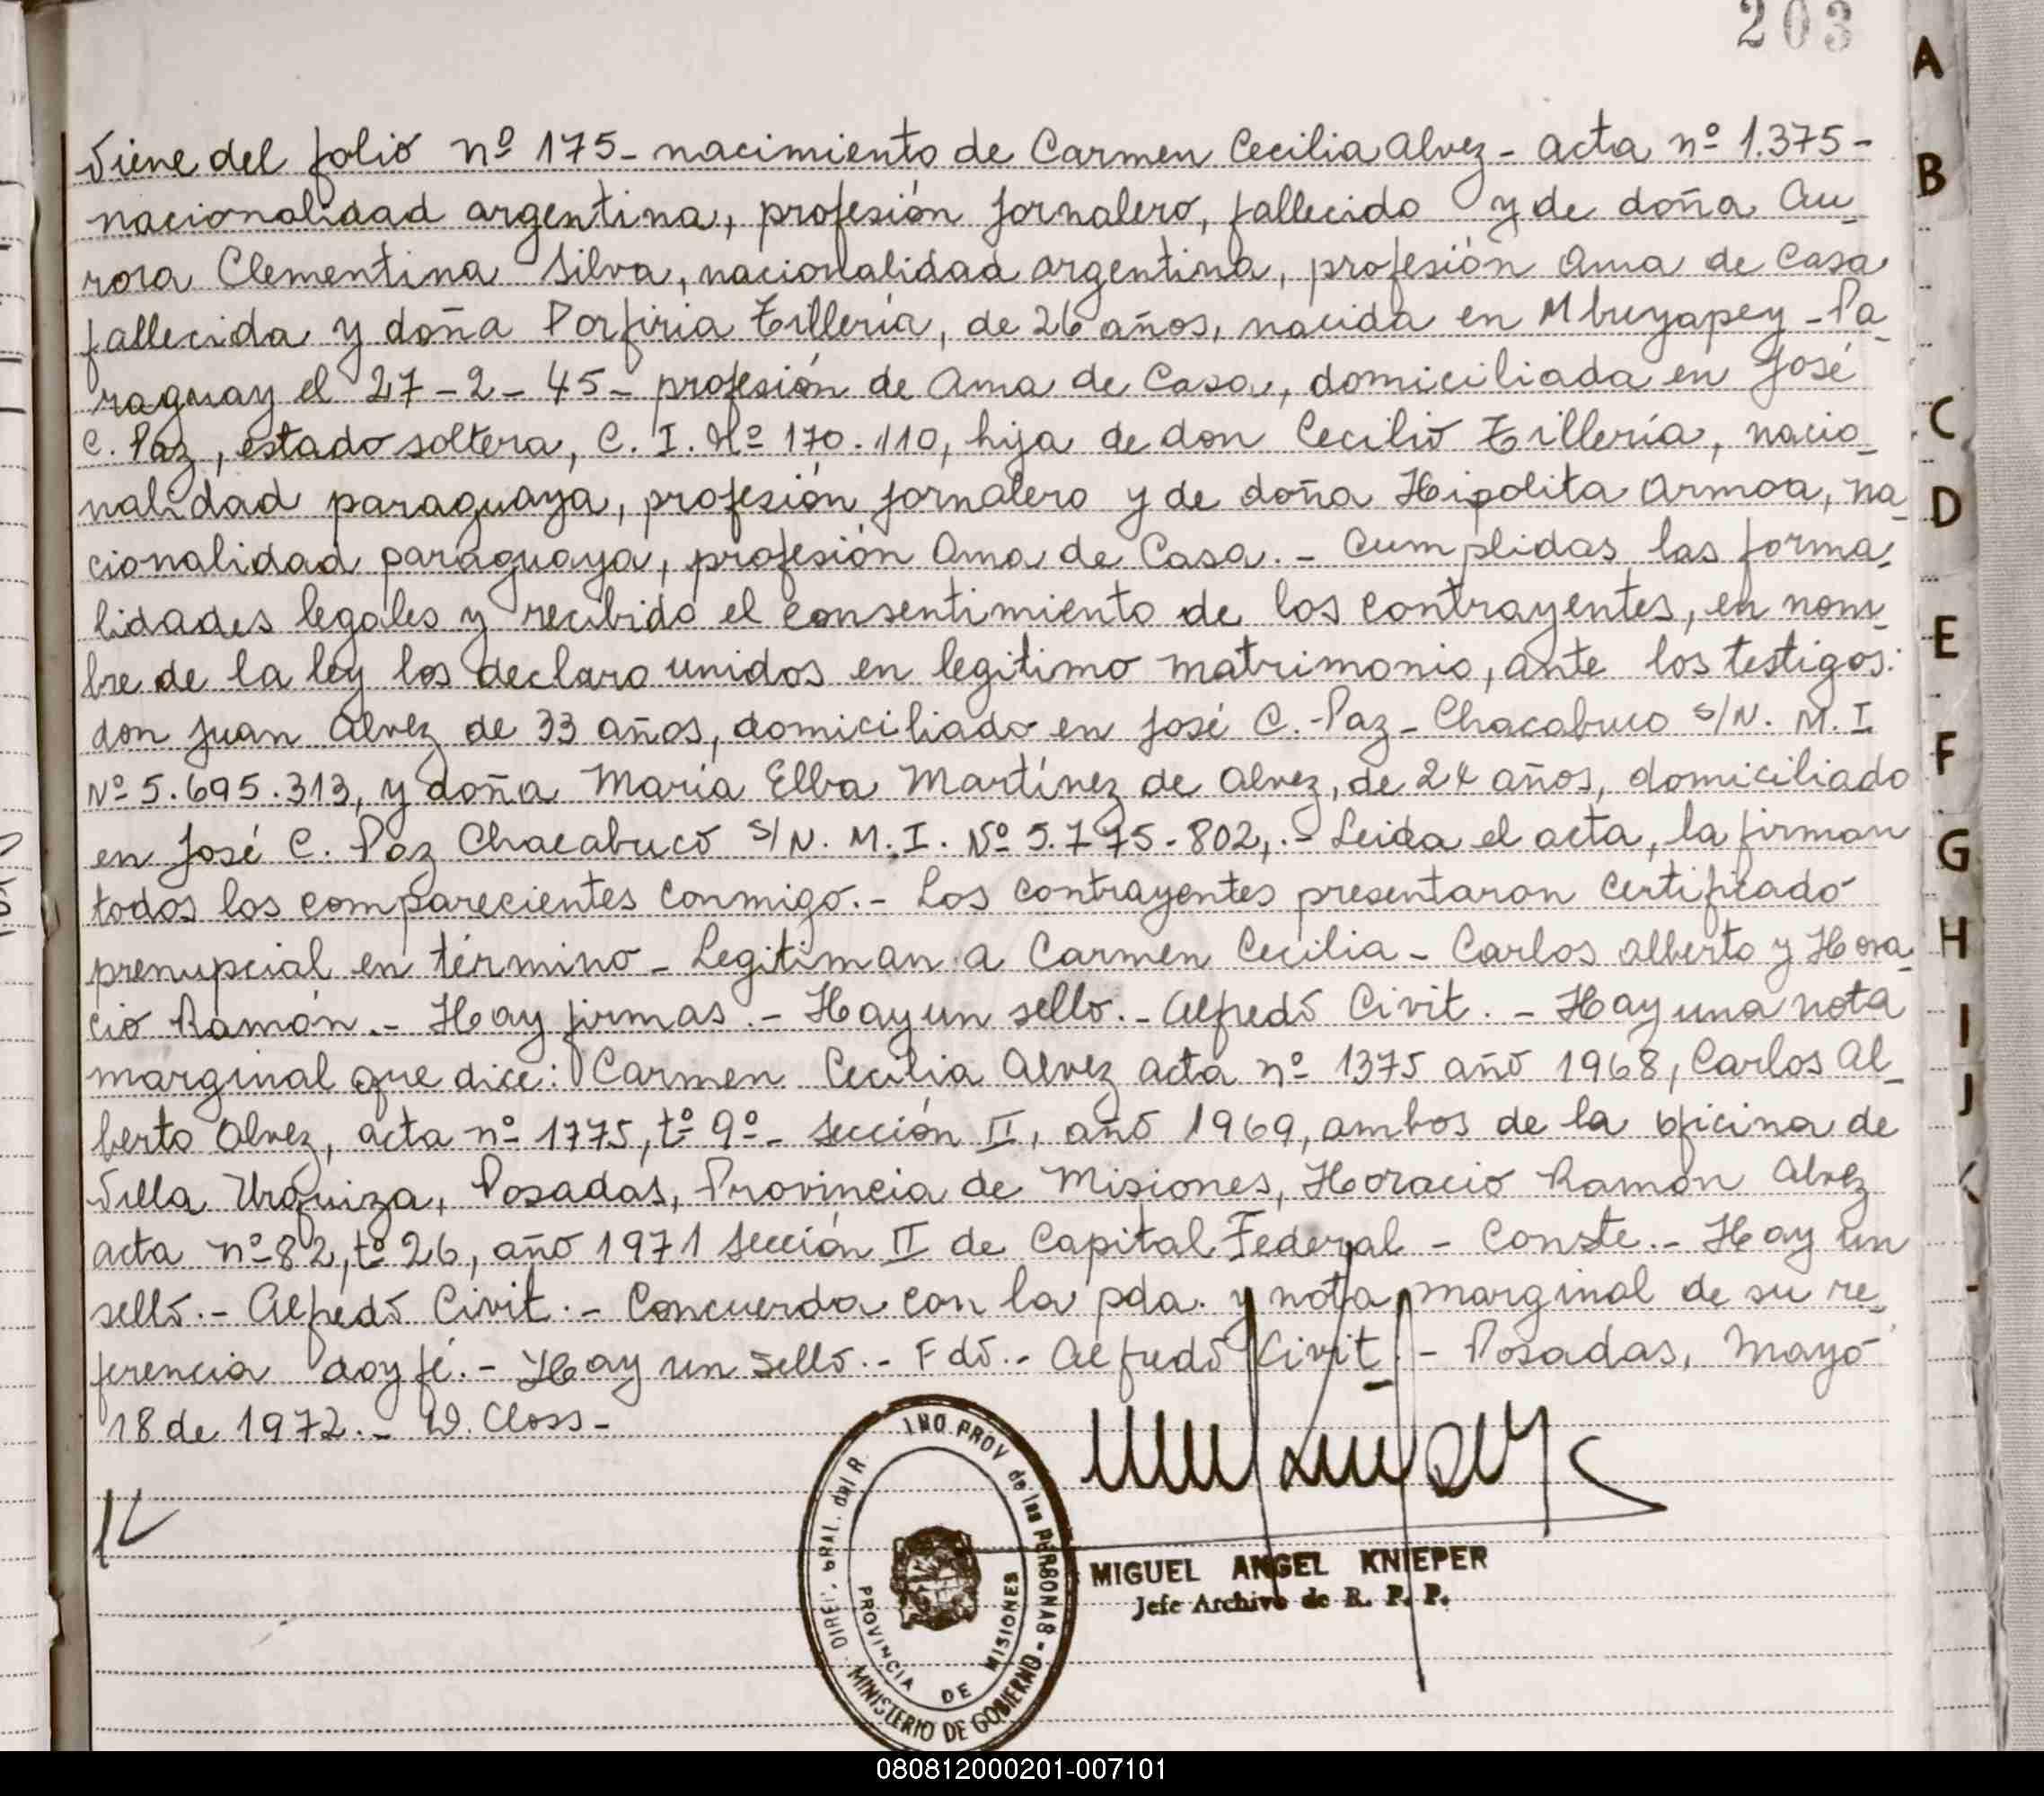 203
Viene del folio nº 175- nacimiento de Carmen Cecilia Alvez - acta nº 1.375-
nacionalidad argentina, profesión jornalero, fallecido y de doña Au-
rora Clementina Silva, nacionalidad argentina, profesión Ama de Casa
fallecida y doña Porfiria Tillería, de 26 años, nacida en Mbuyapey - Pa-
raguay el 27-2-45- profesión de Ama de Casa, domiciliada en José
C. Paz, estado soltera, C. I. Nº 170.110, hija de don Cecilio Tillería, nacio-
nalidad paraguaya, profesión jornalero y de doña Hipolita Armoa, na-
cionalidad paraguaya, profesión Ama de Casa. - Cumplidas las forma-
lidades legales y recibido el consentimiento de los contrayentes, en nom-
bre de la ley los declaro unidos en legitimo matrimonio, ante los testigos:
don Juan Alvez de 33 años, domiciliado en José C. Paz - Chacabuco s/N. M. I
Nº 5.695.313, y doña María Elba Martínez de Alvez, de 24 años, domiciliado
en José C. Paz Chacabuco s/N. M. I. Nº 5.775.802,.- Leida el acta, la firman
todos los comparecientes conmigo.- Los contrayentes presentaron certificado
prenupcial en término - Legitiman a Carmen Cecilia - Carlos Alberto y Hora-
cio Ramón.- Hay firmas.- Hay un sello.- Alfredo Civit. - Hay una nota
marginal que dice: Carmen Cecilia Alvez acta nº 1375 año 1968, Carlos Al-
berto Alvez, acta nº 1775, tº 9º- sección II, año 1969, ambos de la oficina de
Villa Urquiza, Posadas, Provincia de Misiones, Horacio Ramón Alvez
acta nº 82, tº 26, año 1971 sección II de Capital Federal - Conste.- Hay un
sello.- Alfredo Civit.- Concuerda con la pda. y nota marginal de su re-
ferencia doy fé.- Hay un sello.- Fdo.- Alfredo Civit.- Posadas, Mayo
18 de 1972.- W. Closs-
DIREC. GRAL. del R. PROV de las PERSONAS - MINISTERIO DE GOBIERNO
PROVINCIA DE MISIONES
MIGUEL ANGEL KNIEPER
Jefe Archivo de R. P. P.
A
B
C
D
E
F
G
H
I
J
K
080812000201-007101